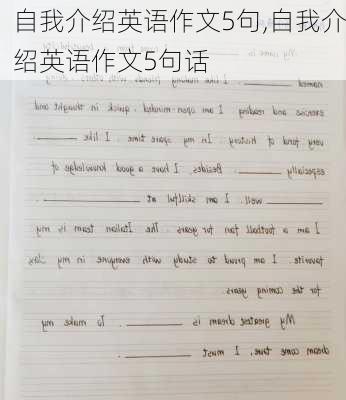 自我介绍英语作文5句,自我介
绍英语作文5句话
My name is
named ______. I like making friends with others, doing
exercise and reading. I am open-minded, quick in thought and
very fond of history. In my spare time, I like ______
especially ______. Besides, I have a good knowledge of
______ well. I am skillful at ______.
I am a football fan for years. The Italian team is my
favorite. I am proud to study with everyone in my class
for the coming years.
My greatest dream is ______. To make my
dream come true, I must ______.